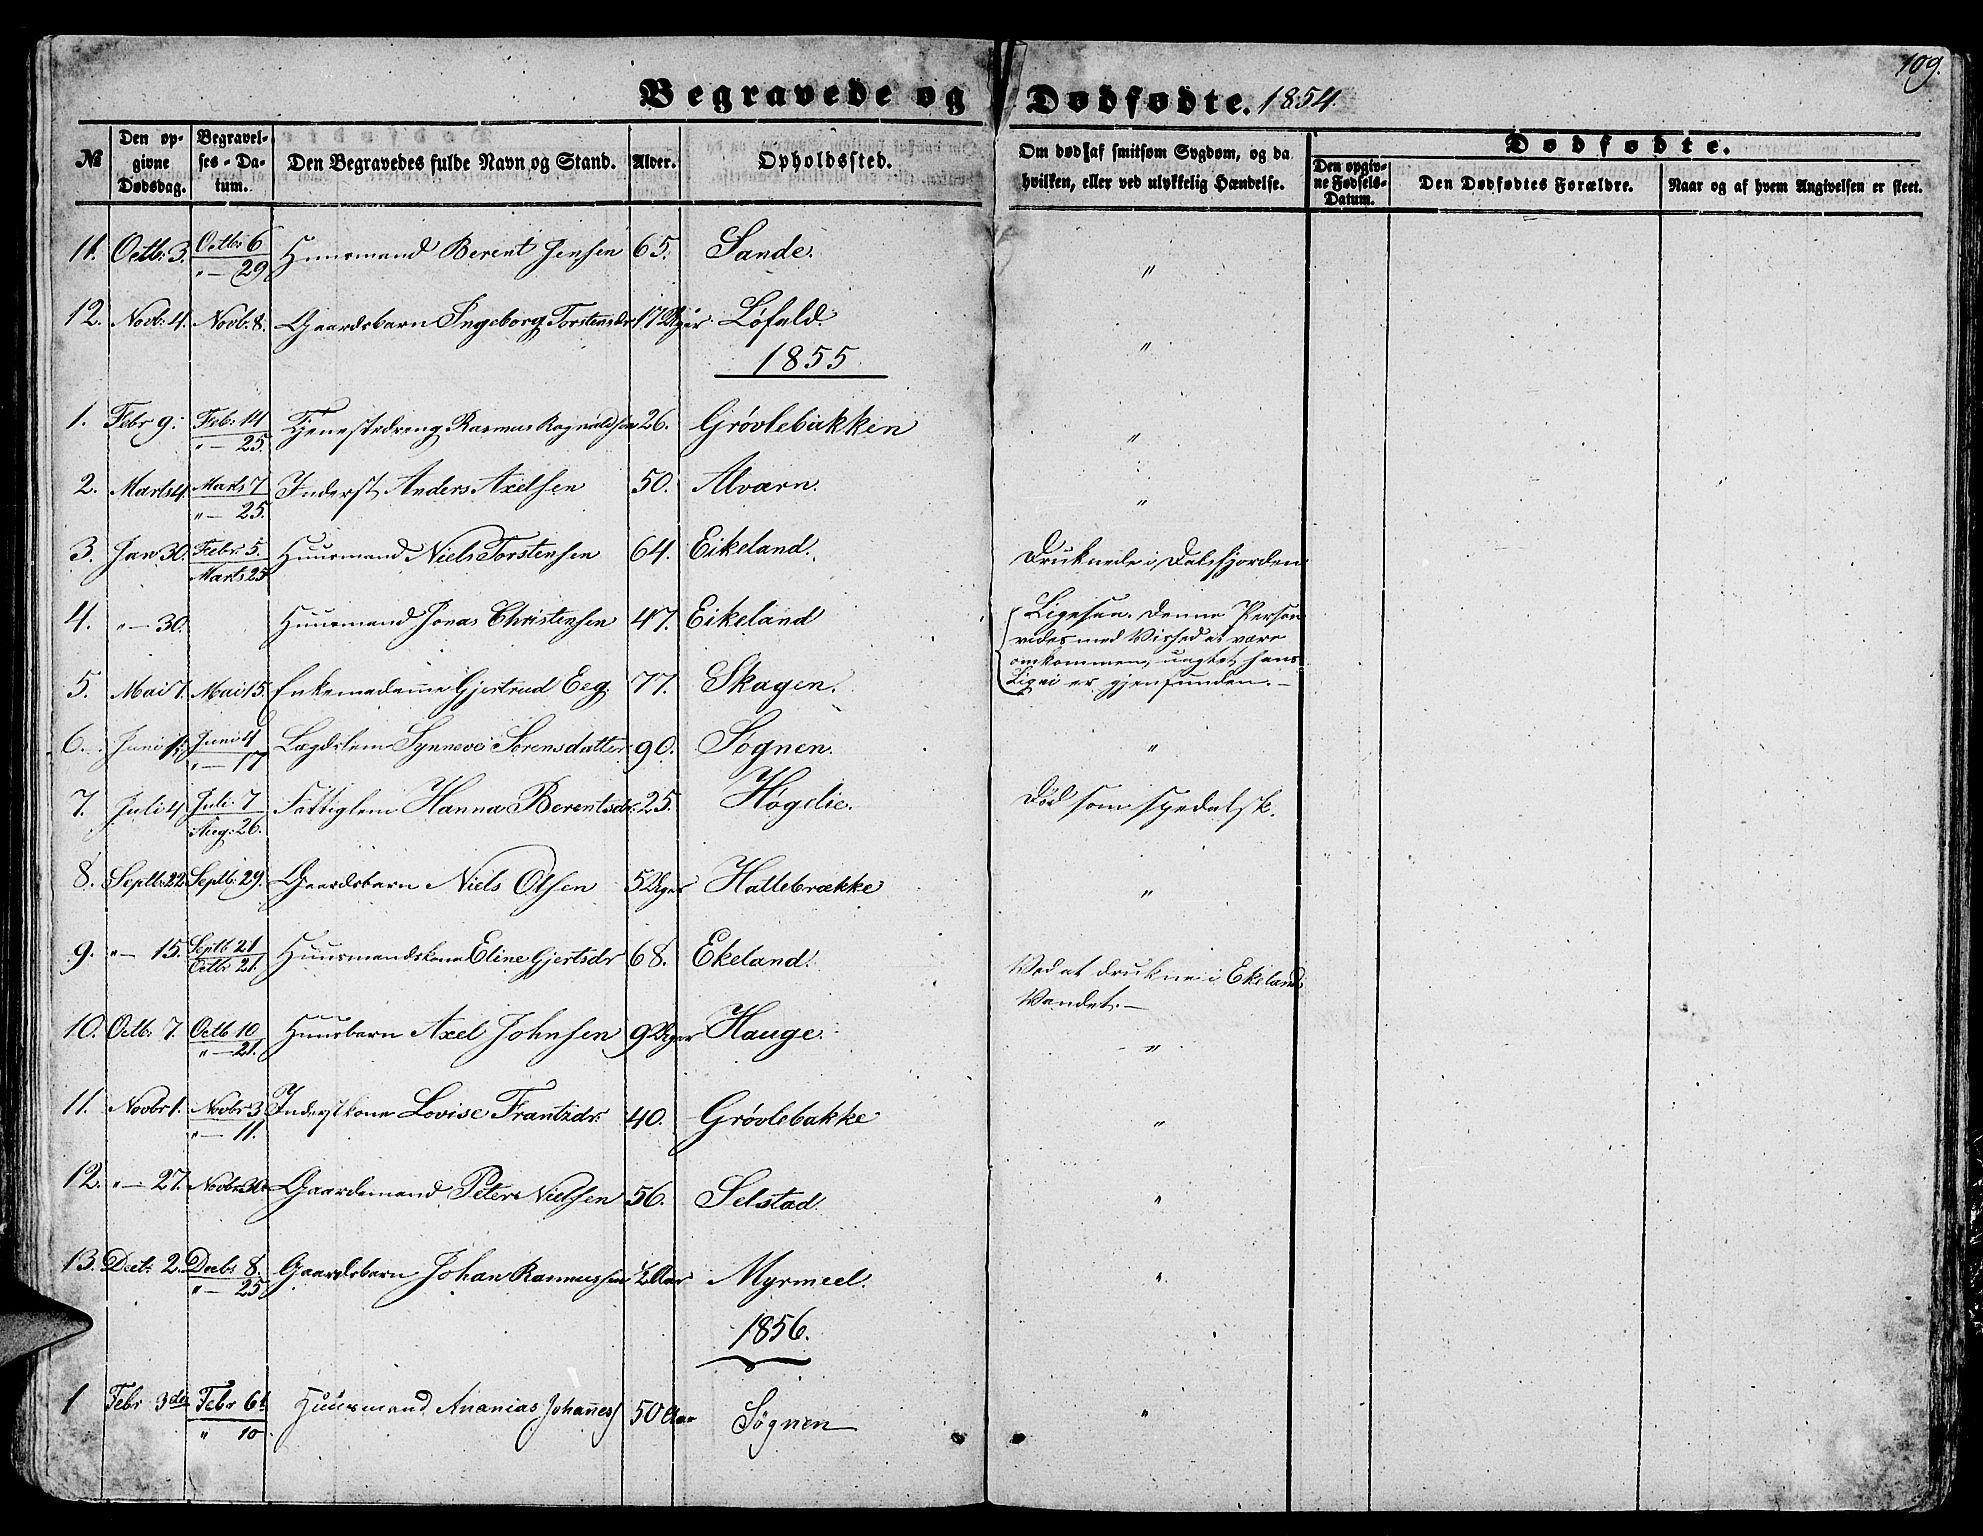 109.
Begravede og Dødfødte. 1854.
№ Den opgivne Dødsdag. Begravelses-Datum. Den Begravedes fulde Navn og Stand. Alder. Opholdssted. Om død af smitsom Sygdom, og da hvilken, eller ved ulykkelig Hændelse. Dødfødte. Den opgivne Fødsels-Datum. Den Dødfødtes Forældre. Naar og af hvem Angivelsen er skeet.
11. Octb: 3. Octbr 6 / " — 29 Huusmand Berent Jensen 65. Sande. "
12. Novb: 4. Novb: 8. Gaardsbarn Ingeborg Torstensdr 17 Uger Løfald. "
1855
1. Febr 9. Feb: 14 / " — 25. Tjenestedreng Rasmus Ragnaldsen 26. Grøvlebakken "
2. Marts 4. Marts 7 / " — 25. Inderst Anders Axelsen 50. Alværn. "
3. Jan 30. Febr. 5. / Marts 25 Huusmand Niels Torstensen 64. Eikeland. Druknede i Dalsfjorden
4. " — 30. Huusmand Jonas Christensen 47. Eikeland Ligesaa. Denne Person
vides med Vished at være
omkommen, uagtet hans
Lig ei er gjenfunden. —
5. Mai 7. Mai 15. Enkemadame Gjertrud Eeg. 77. Skagen.
6. Juni 1. Juni 4 / " — 17 Lægdslem Synneve Sørensdatter 90. Søgnen. "
7. Juli 4 Juli 7 / Aug: 26. Fattiglem Hanna Berentsdr: 25. Høgelie. Død som spedalsk.
8. Septb: 22 Septb: 29. Gaardsbarn Niels Olsen 5 Uger Hallebrække "
9. " — 15. Septb 21 / Octbr 21. Huusmandskone Eline Gjertsdr 68. Ekeland. Ved at drukne i Ekelands
Vandet. —
10. Octb: 7. Octb 10 / " — 21. Huusbarn Axel Johnsen 9 Uger Hauge. "
11. Novbr 1. Novbr 3 / " — 11. Inderstkone Lovise Frantzdr: 40. Grøvlebakke "
12. " — 27. Novbr 30. Gaardemand Peter Nielsen 56. Selstad. "
13. Decb: 2. Decb: 8. / " — 25 Gaardsbarn Johan Rasmussen ½ Aar Myrmeel. "
1856.
1 Febr 3die Febr 6t / " 10 Huusmand Ananias Johannes 50 Aar Søgnen "